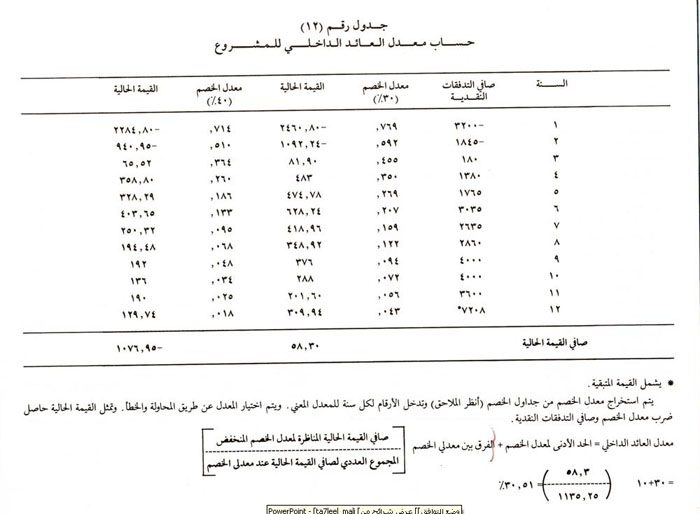 جدول رقم (١٢)
حساب معدل العائد الداخلي للمشروع
السنة صافي التدفقات النقدية معدل الخصم (٣٠٪) القيمة الحالية معدل الخصم (٤٠٪) القيمة الحالية
١ ٣٢٠٠- ,٧٦٩ ٢٤٦٠,٨٠- ,٧١٤ ٢٢٨٤,٨٠-
٢ ١٨٤٥- ,٥٩٢ ١٠٩٢,٢٤- ,٥١٠ ٩٤٠,٩٥-
٣ ١٨٠ ,٤٥٥ ٨١,٩٠ ,٣٦٤ ٦٥,٥٢
٤ ١٣٨٠ ,٣٥٠ ٤٨٣ ,٢٦٠ ٣٥٨,٨٠
٥ ١٧٦٥ ,٢٦٩ ٤٧٤,٧٨ ,١٨٦ ٣٢٨,٢٩
٦ ٣٠٣٥ ,٢٠٧ ٦٢٨,٢٤ ,١٣٣ ٤٠٣,٦٥
٧ ٢٦٣٥ ,١٥٩ ٤١٨,٩٦ ,٠٩٥ ٢٥٠,٣٢
٨ ٢٨٦٠ ,١٢٢ ٣٤٨,٩٢ ,٠٦٨ ١٩٤,٤٨
٩ ٤٠٠٠ ,٠٩٤ ٣٧٦ ,٠٤٨ ١٩٢
١٠ ٤٠٠٠ ,٠٧٢ ٢٨٨ ,٠٣٤ ١٣٦
١١ ٣٦٠٠ ,٠٥٦ ٢٠١,٦٠ ,٠٢٥ ١٩٠
١٢ ٧٢٠٨* ,٠٤٣ ٣٠٩,٩٤ ,٠١٨ ١٢٩,٧٤
صافي القيمة الحالية ٥٨,٣٠ ١٠٧٦,٩٥-
* يشمل القيمة المتبقية.
يتم استخراج معدل الخصم من جداول الخصم (أنظر الملاحق) وتدخل الأرقام لكل سنة للمعدل المعني. ويتم اختيار المعدل عن طريق المحاولة والخطأ. وتمثل القيمة الحالية حاصل
ضرب معدل الخصم وصافي التدفقات النقدية.
معدل العائد الداخلي = الحد الأدنى لمعدل الخصم + الفرق بين معدلي الخصم [صافي القيمة الحالية المناظرة لمعدل الخصم المنخفض
المجموع العددي لصافي القيمة الحالية عند معدلي الخصم]
= ٣٠+١٠ (٥٨,٣
١١٣٥,٢٥) = ٣٠,٥١٪
PowerPoint - [ta7leel_mali] [عرض شرائح من] [وضع التوافق]